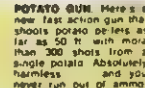 POTATO GUN. Here's a
new fast action gun that
shoots potato pellets as
far as 50 ft with more
than 300 shots from a
single potato Absolutely
harmless and you
never run out of ammo